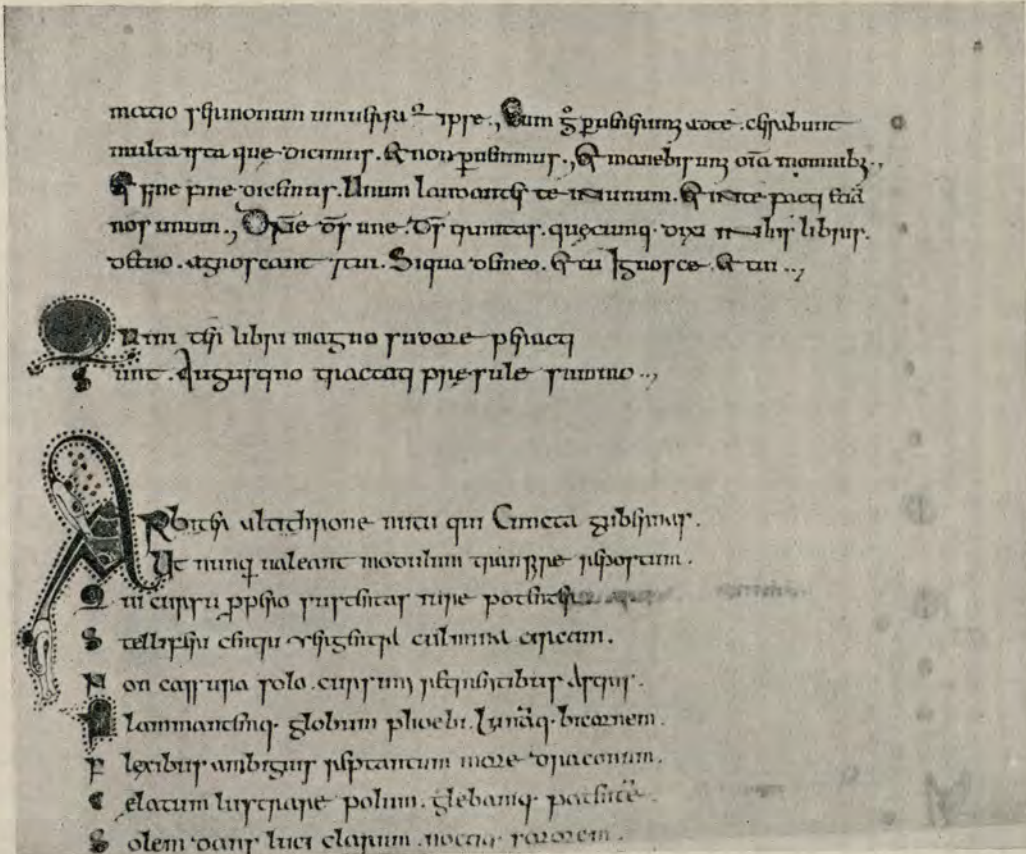 matio sermonum uniuersu ÷ ipse., Cum g̊ peruenerimus adte. cessabunt
multa ista que dicimus. & non peruenimus., & manebis unus om̄a inomnib;.,
& sine fine dicemus. Unum laudantes te inunum. & inte facti etiā
nos unum., Dom̄e ds̄ une. Ds̄ trinitas. quęcunq· dixi inhis libris.
detuo. agnoscant &tui. Siqua demeo. & tu Ignosce. & tui..,
Quinti ter libri magno sudore peracti
Sunt. Augustino tractati presule summo..,
ARbiter altithrone nutu qui Cuncta gubernas.
Ut nunq̄ ualeant modulum transire repertum.
Qui curru proprio sustentas iure potenter
Stelligeri centri uergentia culmina circum.
Non casura solo. cursum
Flammantemq· globum phoebi. Lunāq· bicornem.
Flexibus ambiguis reptantum more draconum.
Celatum lustrare polum. glebamq· patentē.
Solem dans luci clarum. noctiq· sororem.